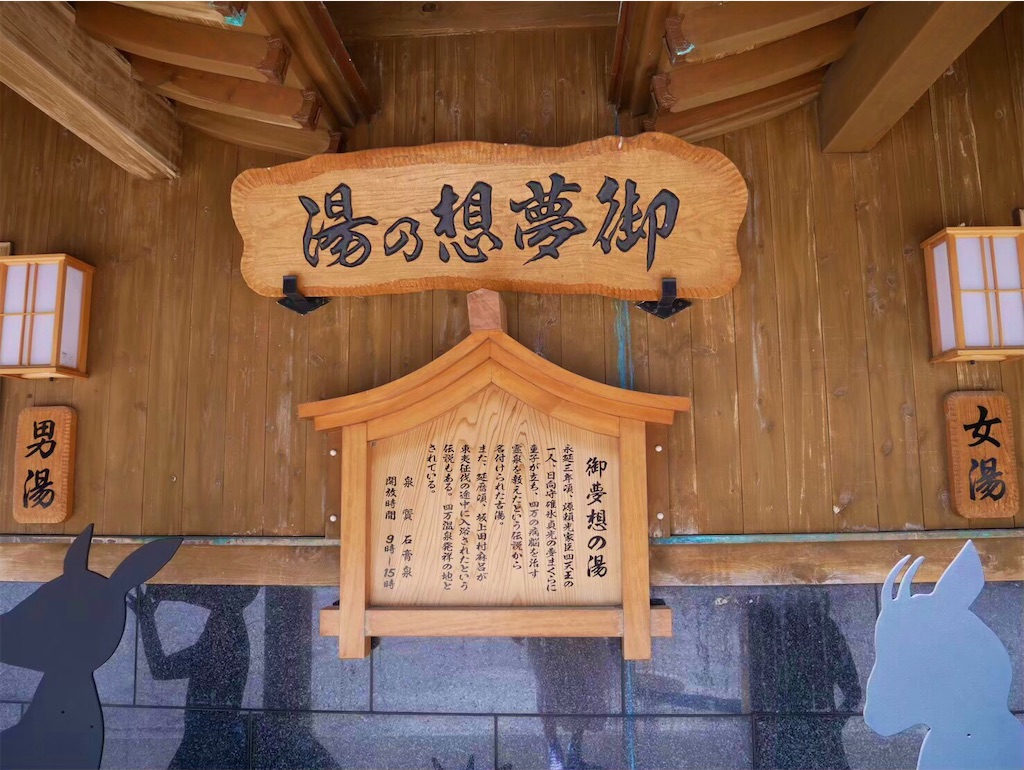 御夢想乃湯
女湯
御夢想の湯
永延三年頃、源頼光家臣四天王の
一人、日向守碓氷貞光の夢まくらに
童子が立ち、四万の病脳を治す
霊泉を教えたという伝説から
名付けられた古湯。
また、延暦頃、坂上田村麻呂が
東夷征伐の途中に入浴されたという
伝説もある。四万温泉発祥の地と
されている。
泉質 石膏泉
開放時間 9時―15時
男湯